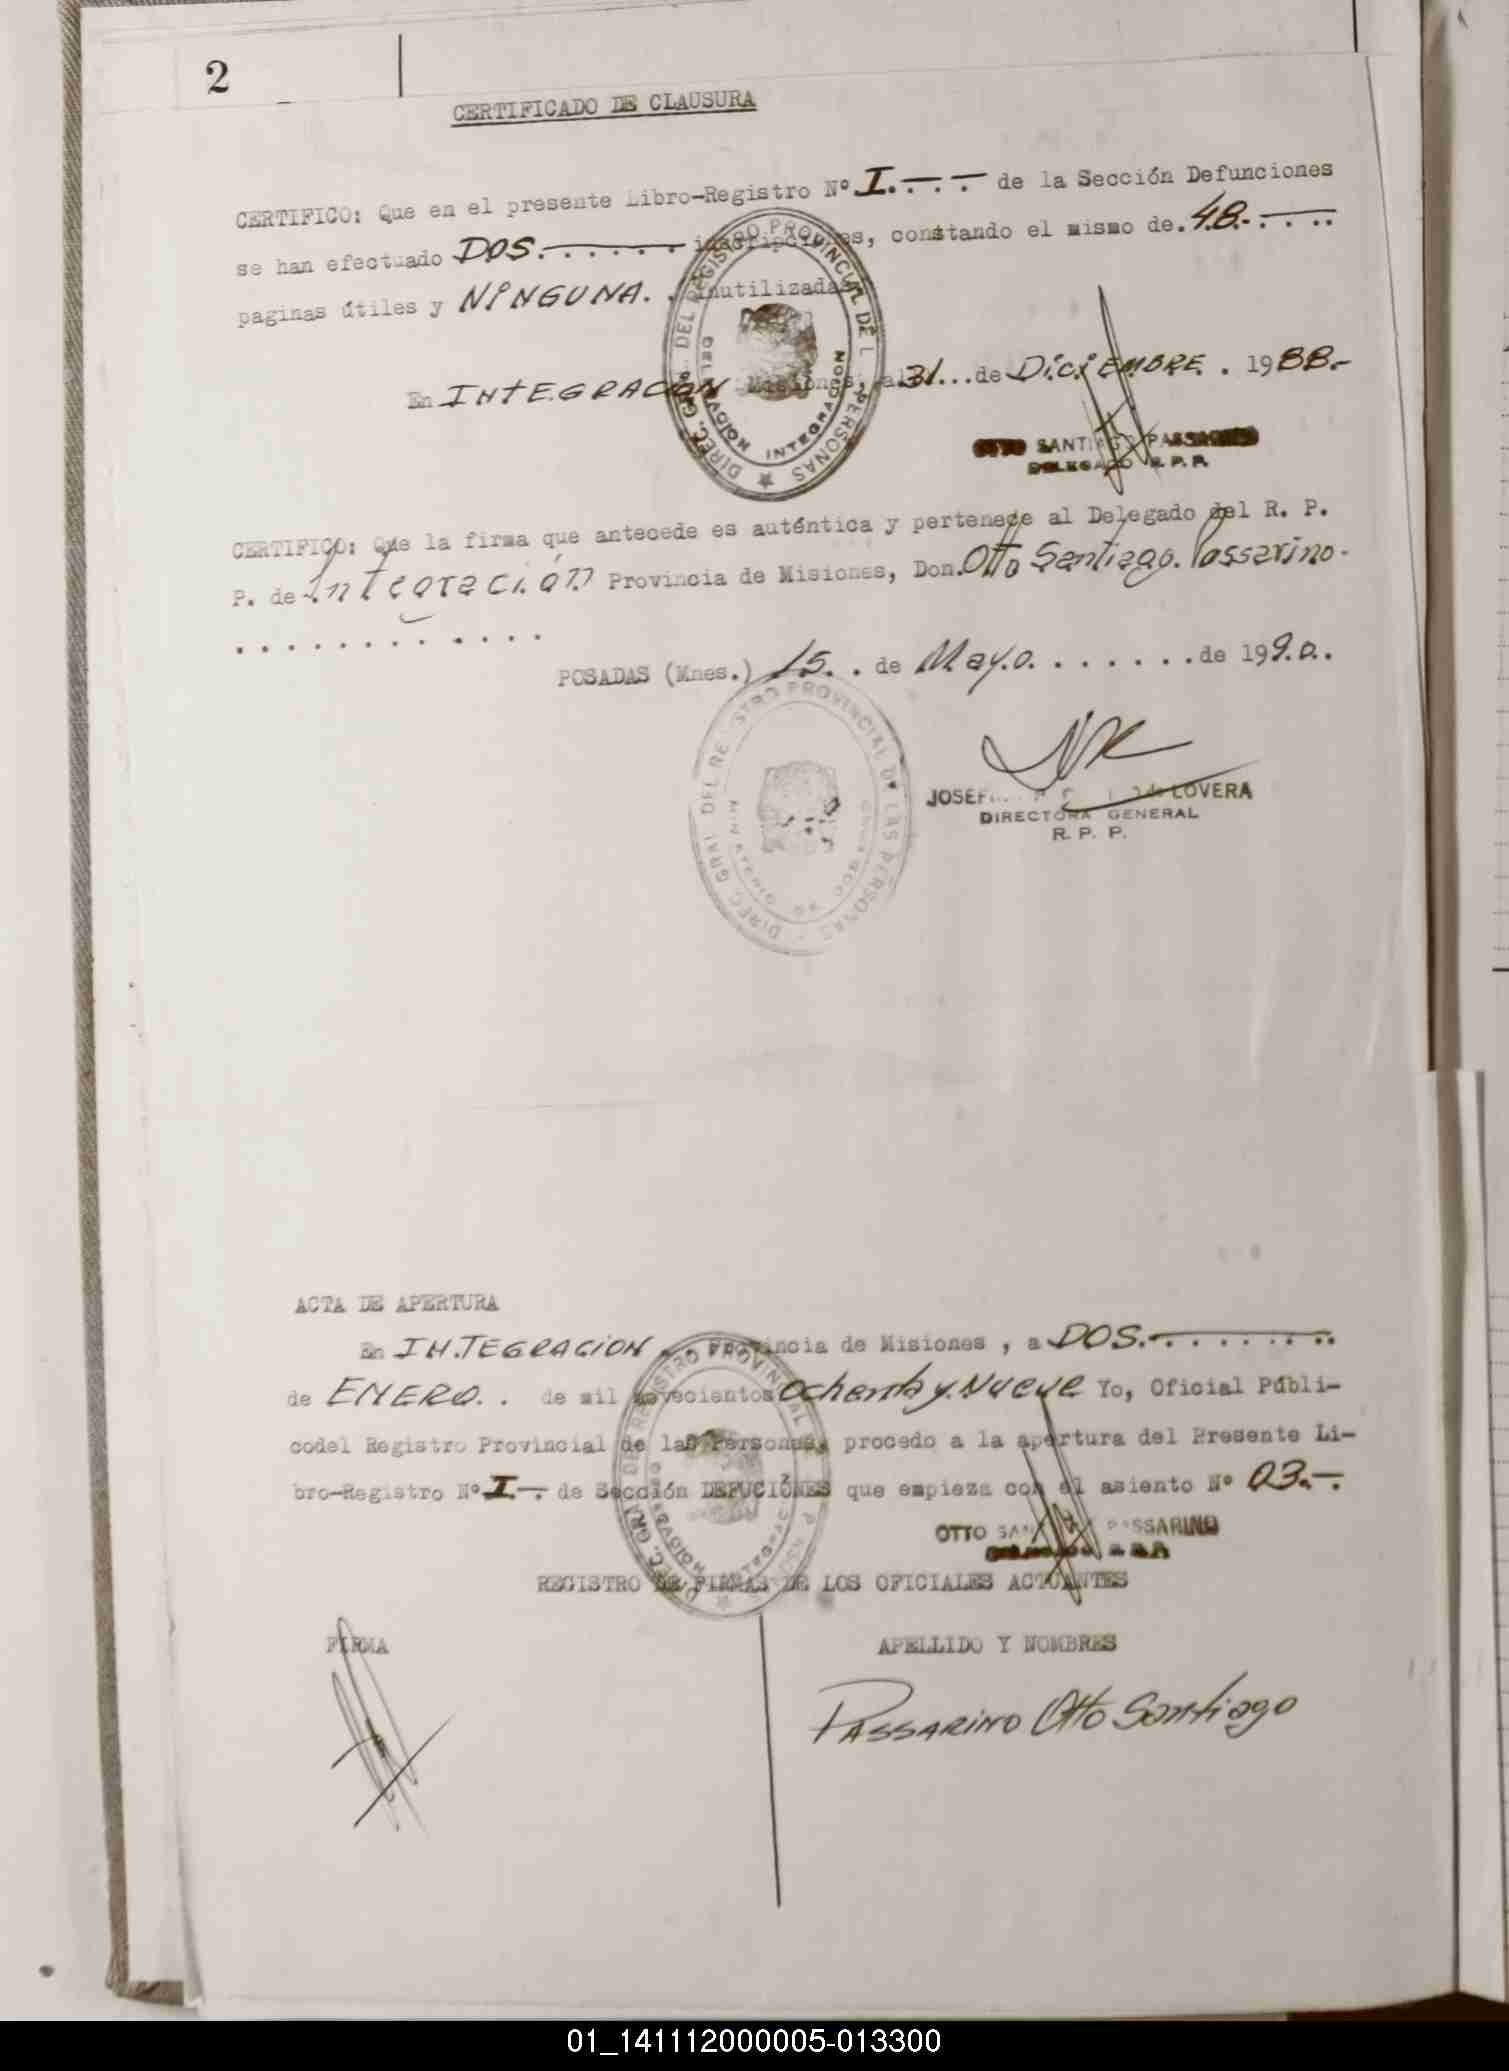 2
CERTIFICADO DE CLAUSURA
CERTIFICO: Que en el presente Libro-Registro Nº I.-.-.- de la Sección Defunciones
se han efectuado DOS.-...... inscripciones, constando el mismo de.48.-....
paginas útiles y NINGUNA. . inutilizadas
En INTEGRACION Misiones, al 31...de DICIEMBRE. 1988.-
OTTO SANTIAGO PASSARINO
DELEGADO R. P. P.
DIREC. GRAL. DEL REGISTRO PROVINCIAL DE L PERSONAS
DELEGACION INTEGRACION
CERTIFICO: Que la firma que antecede es auténtica y pertenece al Delegado del R. P.
P. de Integración Provincia de Misiones, Don.Otto Santiago Passarino.
. . . . . . . . . . . . .
POSADAS (Mnes.) 15. . de Mayo. . . . . . . de 1990..
DIREC. GRAL DEL REGISTRO PROVINCIAL DE LAS PERSONAS
LOVERA
DIRECTORA GENERAL
R. P. P.
ACTA DE APERTURA
En INTEGRACION . . Provincia de Misiones , a DOS.-. . . . . . .
de ENERO. . de mil novecientos ochenta y Nueve Yo, Oficial Públi-
codel Registro Provincial de las Personas, procedo a la apertura del Presente Li-
bro-Registro Nº I.-. de Sección DEFUCIÓNES que empieza con el asiento Nº 03.-.
OTTO SANTIAGO PASSARINO
REGISTRO DE FIRMAS DE LOS OFICIALES ACTUANTES
FIRMA APELLIDO Y NOMBRES
PASSARINO Otto Santiago
01_141112000005-013300